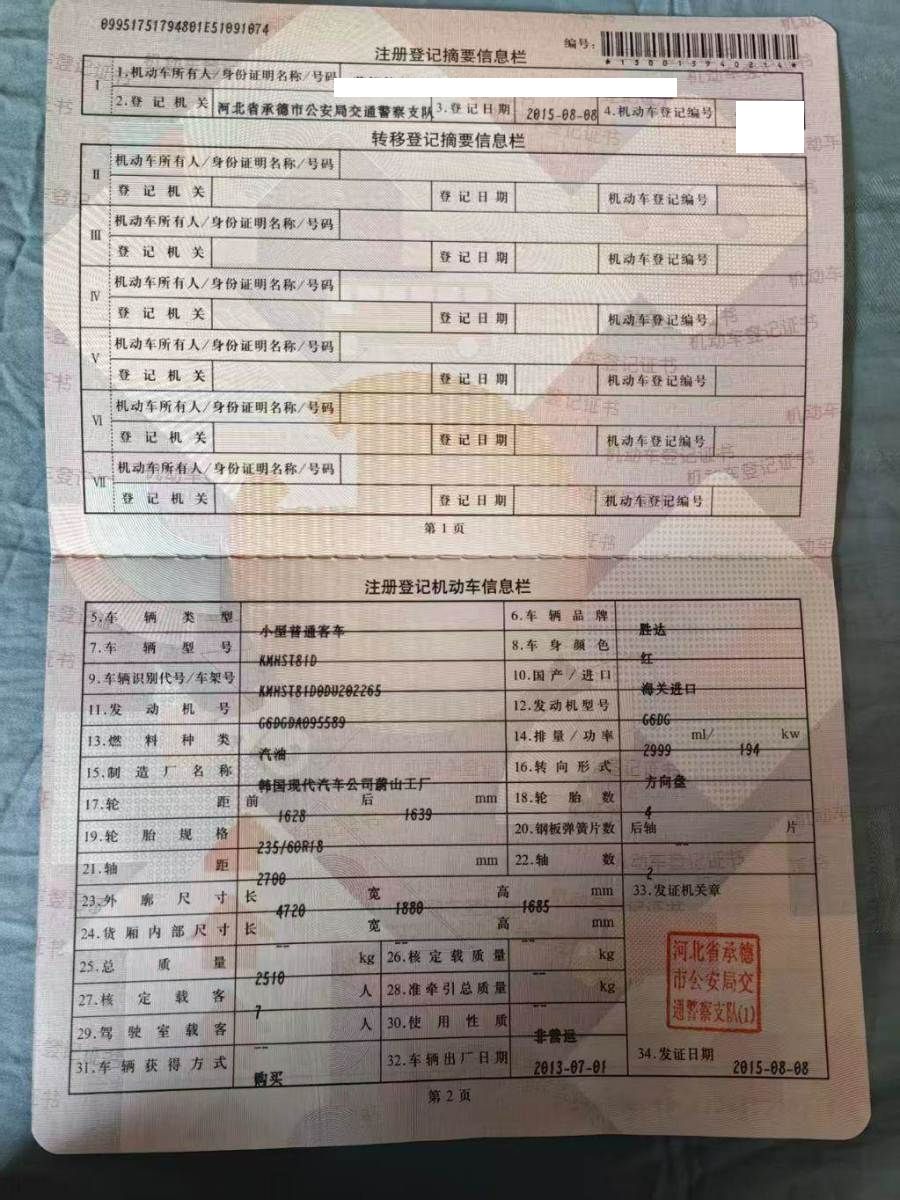 09951751794801E51091074
编号:
*130013940214*
注册登记摘要信息栏
I 1.机动车所有人/身份证明名称/号码
2.登记机关 河北省承德市公安局交通警察支队 3.登记日期 2015-08-08 4.机动车登记编号
转移登记摘要信息栏
II 机动车所有人/身份证明名称/号码
登记机关 登记日期 机动车登记编号
III 机动车所有人/身份证明名称/号码
登记机关 登记日期 机动车登记编号
IV 机动车所有人/身份证明名称/号码
登记机关 登记日期 机动车登记编号
V 机动车所有人/身份证明名称/号码
登记机关 登记日期 机动车登记编号
VI 机动车所有人/身份证明名称/号码
登记机关 登记日期 机动车登记编号
VII 机动车所有人/身份证明名称/号码
登记机关 登记日期 机动车登记编号
第1页
注册登记机动车信息栏
5.车辆类型 小型普通客车 6.车辆品牌 胜达
7.车辆型号 KMHST81D 8.车身颜色 红
9.车辆识别代号/车架号 KMHST81D0DU202265 10.国产/进口 海关进口
11.发动机号 G6DGDA095589 12.发动机型号 G6DG
13.燃料种类 汽油 14.排量/功率 2999 ml/ 194 kw
15.制造厂名称 韩国现代汽车公司蔚山工厂 16.转向形式 方向盘
17.轮距 前 1628 后 1639 mm 18.轮胎数 4
19.轮胎规格 235/60R18 20.钢板弹簧片数 后轴 -- 片
21.轴距 2700 mm 22.轴数 2
23.外廓尺寸 长 4720 宽 1880 高 1685 mm 33.发证机关章
24.货厢内部尺寸 长 -- 宽 -- 高 -- mm
25.总质量 2510 kg 26.核定载质量 -- kg
27.核定载客 7 人 28.准牵引总质量 -- kg
29.驾驶室载客 -- 人 30.使用性质 非营运
31.车辆获得方式 购买 32.车辆出厂日期 2013-07-01
河北省承德
市公安局交
通警察支队(1)
34.发证日期 2015-08-08
第2页